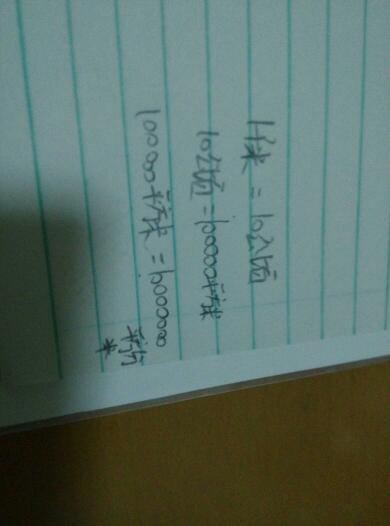 1千米=10公顷
10公顷=100000平方米
100000平方米=10000000
平方分米